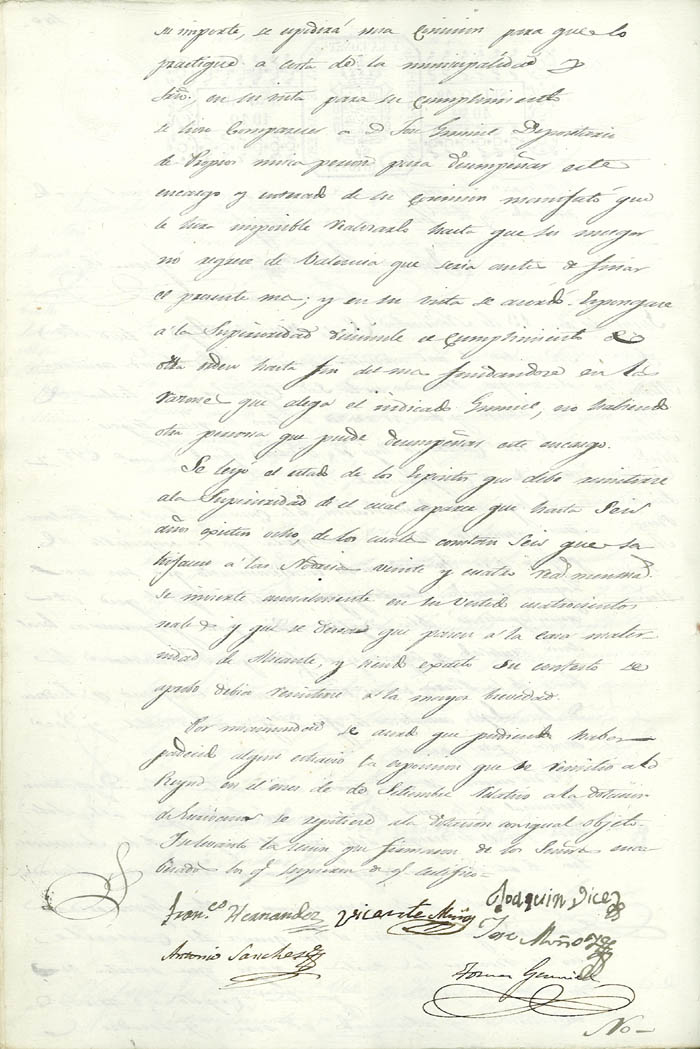 su importe, se espedirá una comision para que lo
practique a costa de la municipalidad y
Sño, en su vista para su cumplimiento
se hizo comparecer a D. José Gomiel Depositario
de Propios unica persona para desempeñar este
encargo y enterado de su comision manifestó que
le hera imposible realizarlo hasta que su muger
no regrese de Valencia que seria antes de finar
el presente mes; y en su vista se acordó. Espongase
a la Superioridad disimule el cumplimiento de
dha orden hasta fin del mes fundandose en las
razones que alega el indicado Gomiel, no habiendo
otra persona que pueda desempeñar este encargo.
Se leyó el estado de los Espositos que debe remitirse
a la Superioridad de el cual aparece que hasta seis
años existen ocho, de los cuales constan seis que sa
tisfacen á las Nodrizas veinte y cuatro rs mensual
se invierte anualmente en su vestido cuatrocientos
reales y que se desea que pasen a la casa mater-
nidad de Alicante, y siendo exacto su contesto se
aprobó debia remitirse a la mayor brevedad.
Por unanimidad se acordó que pudiendo haber
padecido algun estravio la esposicion que se remitió a la
Reyna en el mes de Setiembre relativo a la dotacion
de Escribanos se repitiese a la Diputacion con igual objeto.
Judicante la union que firmaron de los Señores
los q supieron de q certifico=
Franco Hernandez Vicente Miño Joaquin Dicez
Antonio Sanchez José Miño
Tomas Gomiel
No-